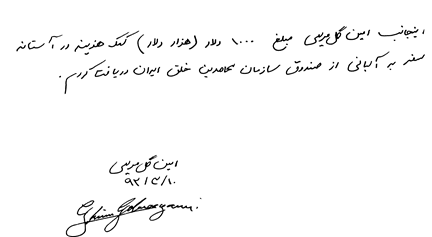 اینجانب امین گل مریمی مبلغ ۱۰۰۰ دلار (هزار دلار) کمک هزینه در آستانه
سفر به آلبانی از صندوق سازمان مجاهدین خلق ایران دریافت کردم.
امین گل مریمی
۹۳/۳/۱۰